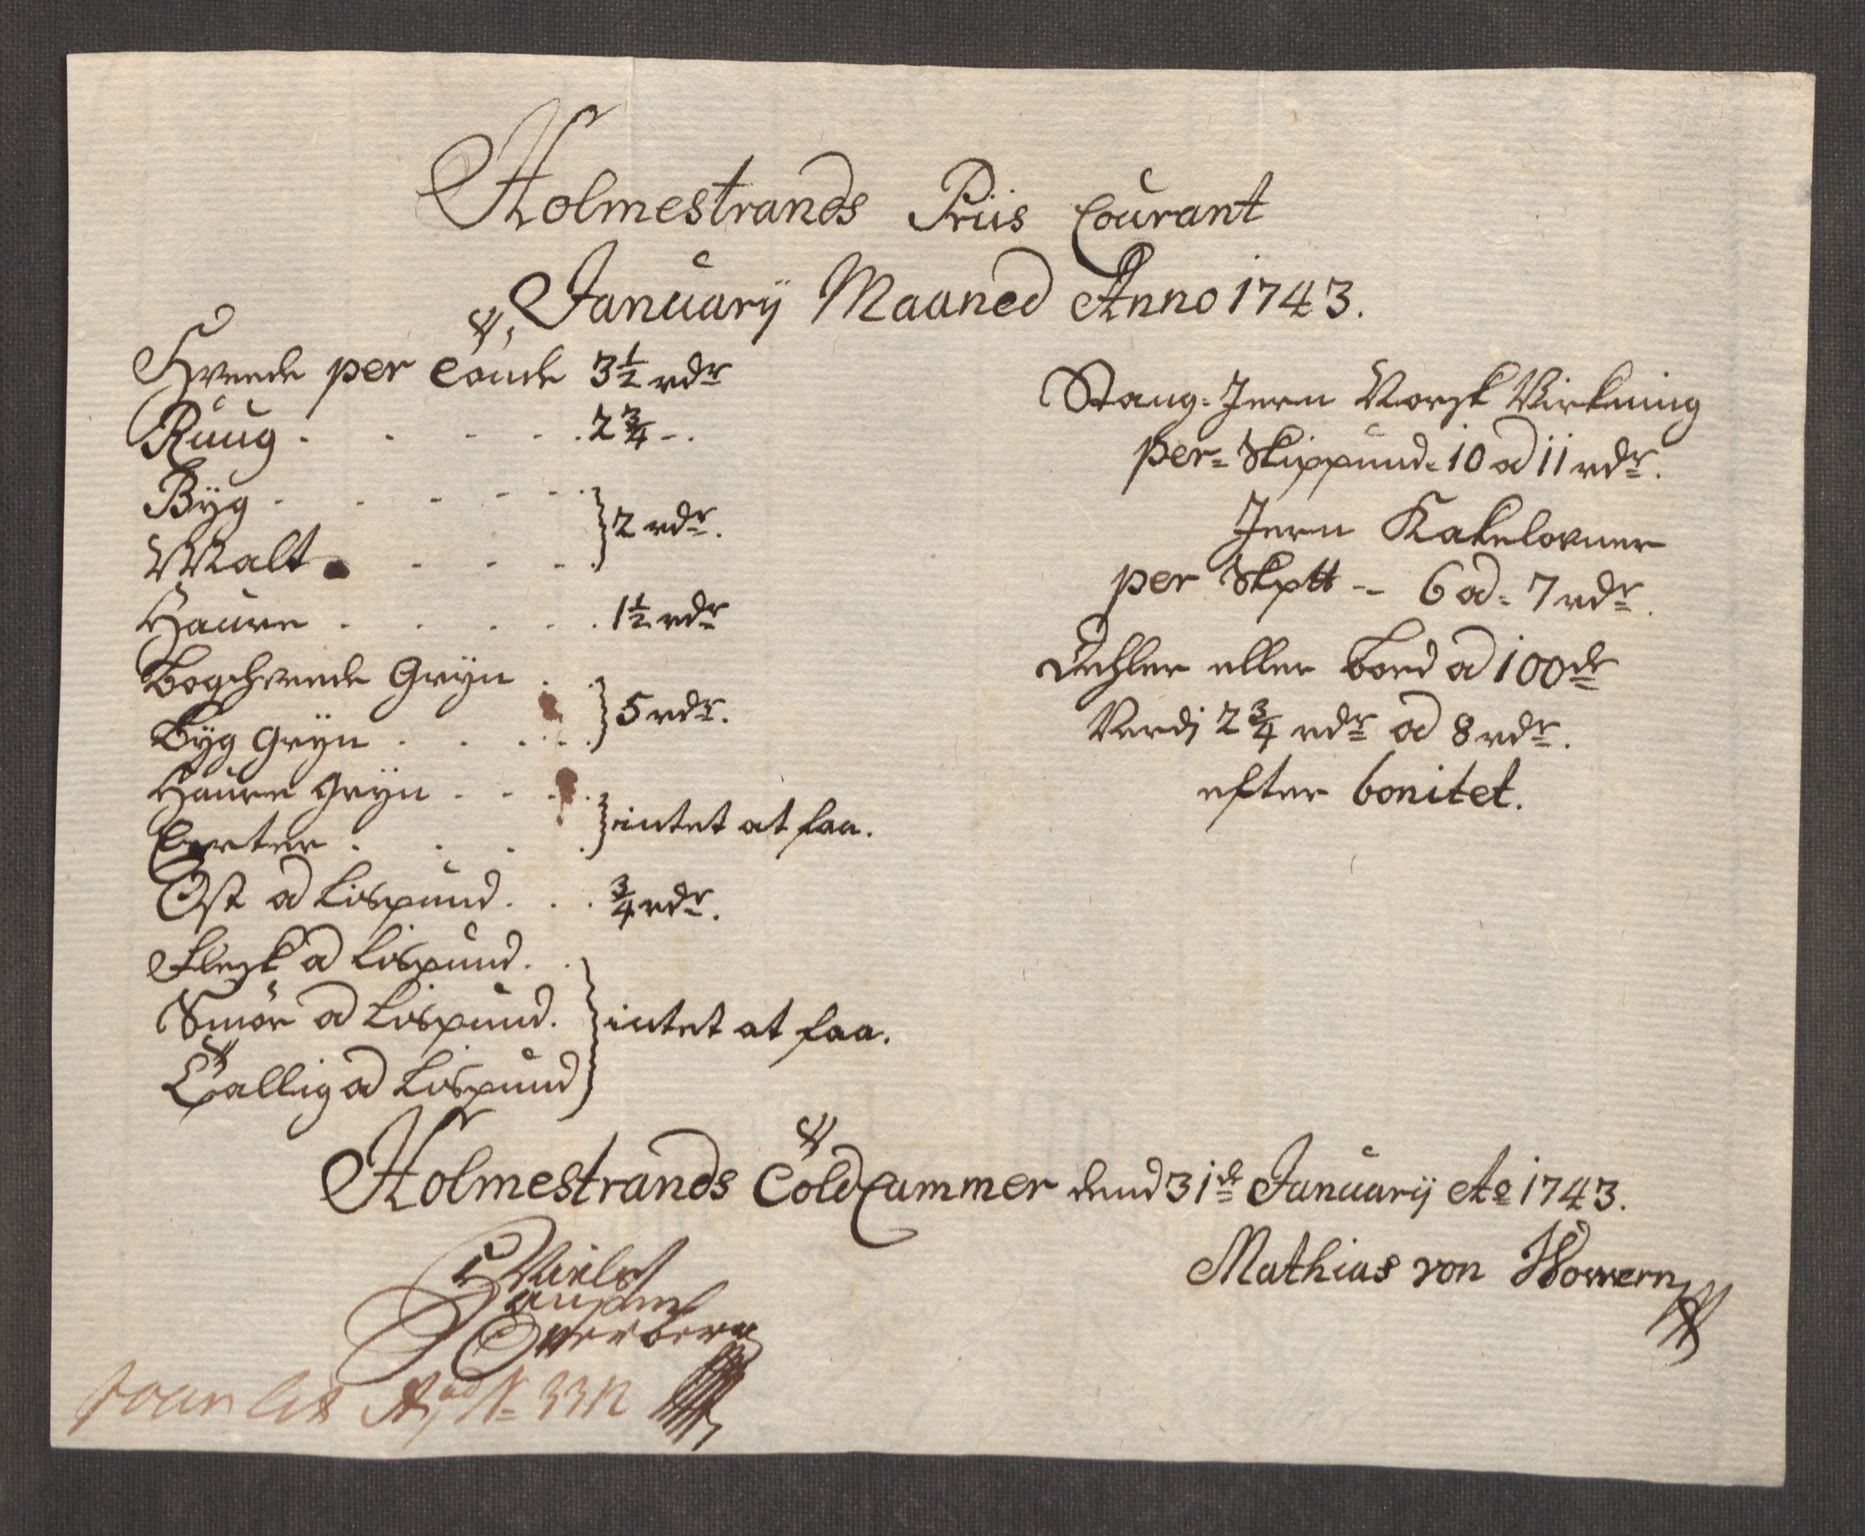 Holmestrands Priis Courant
Januarij Maaned Anno 1743.
Hveede per Tönde 3½ rdr
Ruug . . . . . 2¾ -.
Byg . . . . .
Malt . . . . } 2 rdr.
Haure . . . . . 1½ rdr
Boghveede Gryn .
Byg Gryn . . . . } 5 rdr.
Haure Gryn . . . .
Erter . . . . } intet at faa.
Ost a Lispund . . . ¾ rdr.
Flesk a Lispund . .
Smör a Lispund . } intet at faa.
Tallig a Lispund
Stang-Jern Norsk Virkning
per= Skippund= 10 a 11 rdr.
Jern Kakelovner
per Skp℔ -- 6 a= 7 rdr.
Dehler eller Bord a 100de
Verdj 2¾ rdr a 8 rdr.
efter bonitet.
Holmestrands Toldcammer dend 31de Januarij Ao 1743.
Mathias von Howern
Niels
Overberg